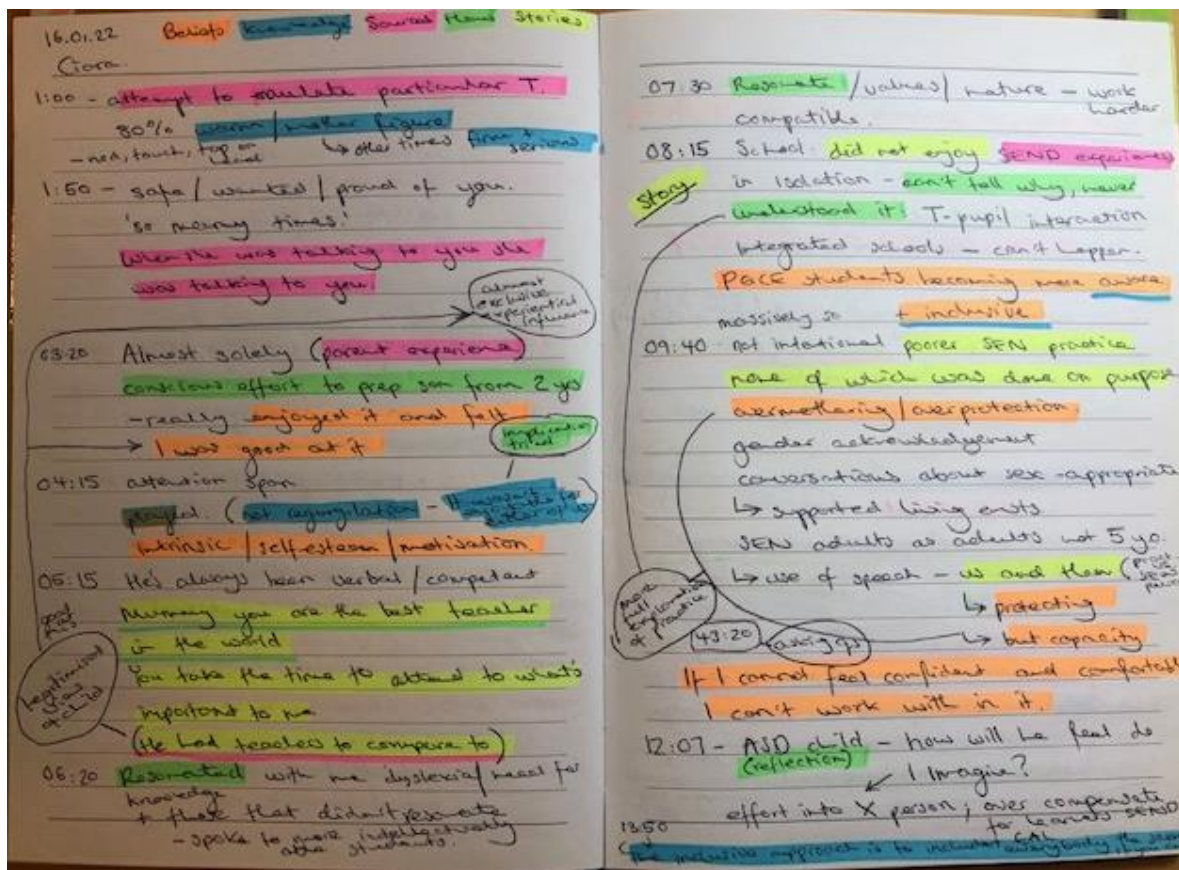 16.01.22 Beliefs Knowledge Sources How Stories
Ciara.
1:00 - attempt to emulate particular T.
80% warm / mother figure
- nod, touch, tap on ↳ other times firm + serious
1:50 - safe / wanted / proud of you.
'so many times.'
When she was talking to you she
was talking to you.
almost exclusive experiential influence
03:20 Almost solely (parent experience)
conscious effort to prep son from 2 yrs
- really enjoyed it and felt
→ I was good at it
implication
04:15 attention span
played. (not regurgitation - it wasn't
Intrinsic / self-esteem / motivation.
05:15 He's always been verbal / competent
Mummy you are the best teacher
in the world
You take the time to attend to what's
important to me
(He had teachers to compare to)
of child
06:20 Resonated with me dyslexia / need for
knowledge
+ those that didn't resonate
- spoke to more intellectually
able students.
07:30 Resonate / values / nature - work
harder
compatible.
08:15 School: did not enjoy SEND experiences
story in isolation - can't tell why, never
understood it! T-pupil interaction
Integrated schools - can't happen.
PGCE students becoming more aware
massively so + inclusive
09:40 not intentional poorer SEN practice
none of which was done on purpose
overmothering / overprotection.
gender acknowledgement
conversations about sex - appropriate
↳ supported living
SEN adults as adults not 5 yo.
↳ use of speech - us and them
↳ protecting
↳ but capacity
more full explanation of practice
43:20 asking qs
If I cannot feel confident and comfortable
I can't work with in it.
12:07 - ASD child - how will he feel do
(reflection) I imagine?
effort into X person; over compensate
for learners SEND
13:50
the inclusive approach is to include everybody, the same